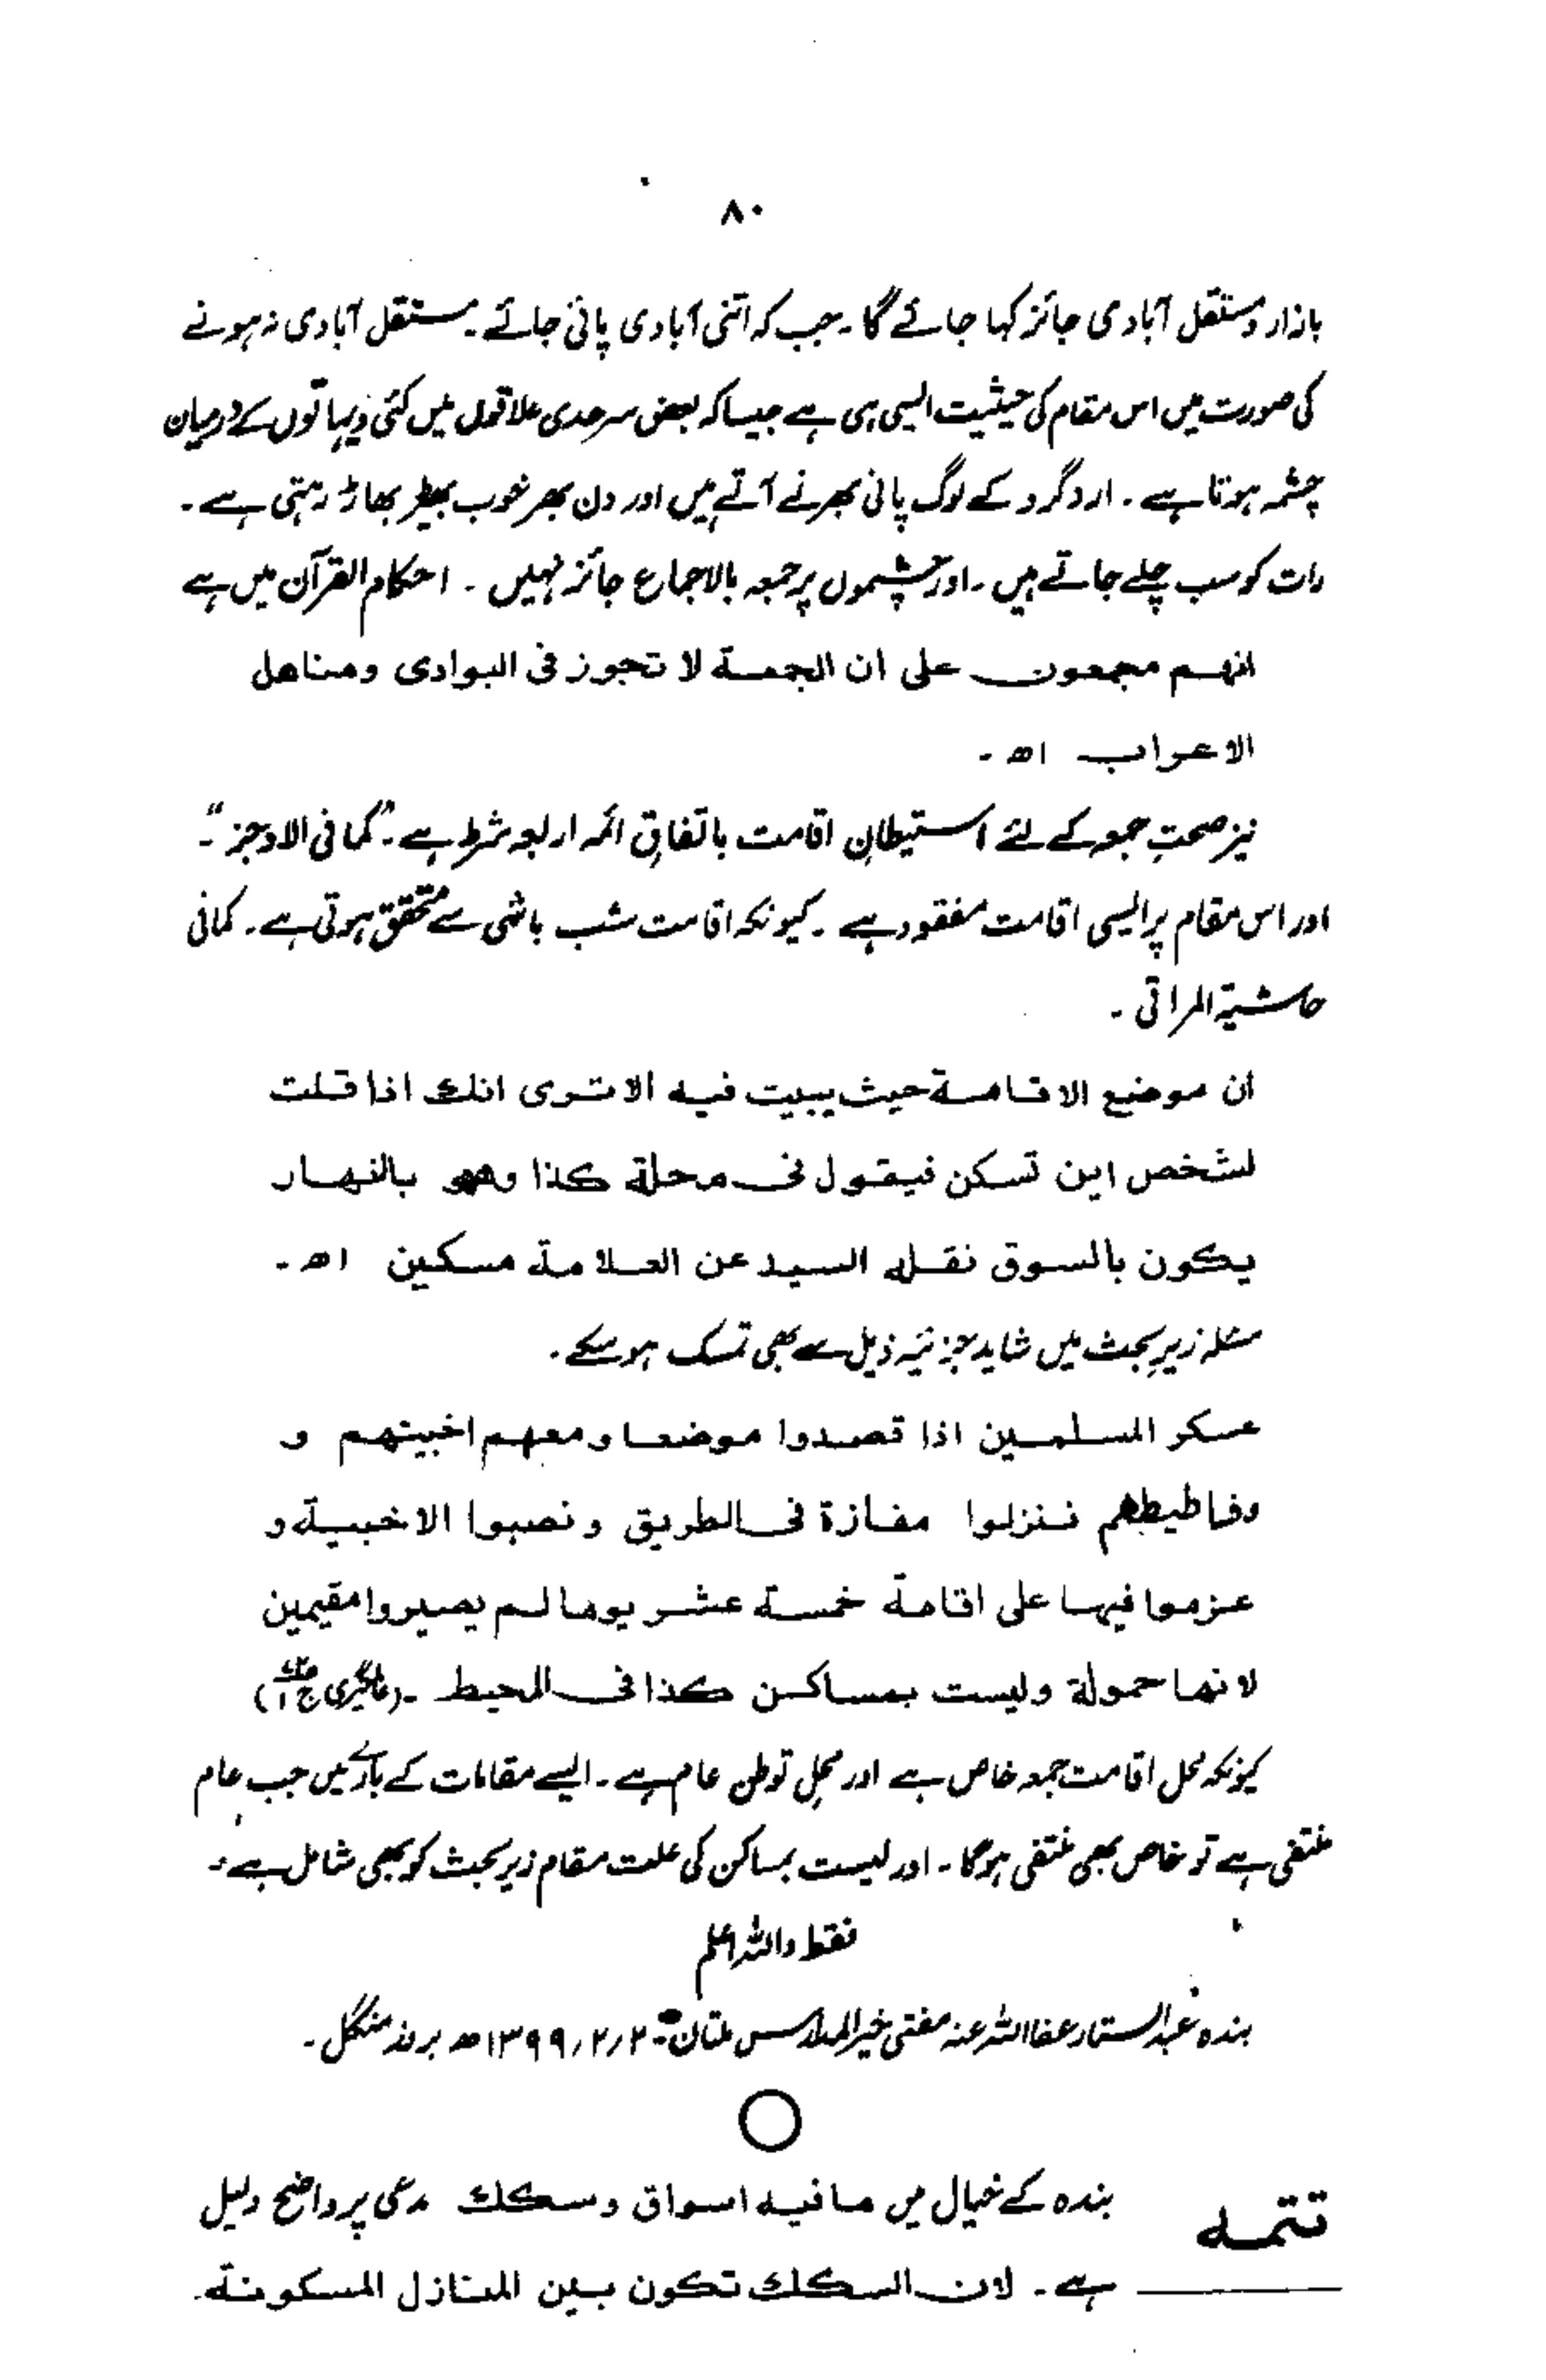 ۸۰
بازار و مستقل آبادی جائز کہا جائے گا۔ جب کہ اتنی آبادی پائی جائے۔ مستقل آبادی نہ ہونے
کی صورت میں اس مقام کی حیثیت ایسی ہی ہے جیسا کہ بعض سرحدی علاقوں میں کئی دیہاتوں کے درمیان
چشمہ ہوتا ہے۔ اردگرد کے لوگ پانی بھرنے آتے ہیں اور دن بھر خوب بھیڑ بھاڑ رہتی ہے۔
رات کو سب چلے جاتے ہیں۔ اور چشموں پر جمعہ بالاجماع جائز نہیں۔ احکام القرآن میں ہے
انهم مجمعون على ان الجمعة لا تجوز فى البوادى ومناهل
الاعراب اھ۔
نیز صحتِ جمعہ کے لئے استیطانِ اقامت باتفاقِ ائمہ اربعہ شرط ہے۔ ”کما فی الاوجز“۔
اور اس مقام پر ایسی اقامت مفقود ہے۔ کیونکہ اقامت شب باشی سے متحقق ہوتی ہے۔ کما فی
حاشیۃ المراقی۔
ان موضع الاقامة حيث يبيت فيه الا ترى انك اذا قلت
لشخص اين تسكن فيقول فى محلة كذا وهو بالنهار
يكون بالسوق نقله السيد عن العلامة مسكين اھ۔
مسئلہ زیرِ بحث میں شاید جزئیہ ذیل سے بھی تمسک ہو سکے۔
عسكر المسلمين اذا قصدوا موضعا ومعهم اخبيتهم و
وفاطيطهم فنزلوا مفازة فى الطريق ونصبوا الاخبية و
عزموا فيها على اقامة خمسة عشر يوما لم يصيروا مقيمين
لانها حمولة وليست بمساكن كذا فى المحيط ۔ (عالمگیری ج۱)
کیونکہ محل اقامت جمعہ خاص ہے اور محلِ توطن عام ہے۔ ایسے مقامات کے بارے میں جب عام
منتفی ہے تو خاص بھی منتفی ہوگا۔ اور لیست بمساکن کی علت مقام زیر بحث کو بھی شامل ہے۔
فقط واللہ اعلم
بندہ عبدالستار عفا اللہ عنہ مفتی خیر المدارس ملتان ۔ ۲/۲/۱۳۹۹ھ بروز منگل۔
تتمہ
بندہ کے خیال میں ما فيه اسواق وسكك مدعی پر واضح دلیل
ہے۔ لان السكك تكون بين المنازل المسكونة۔